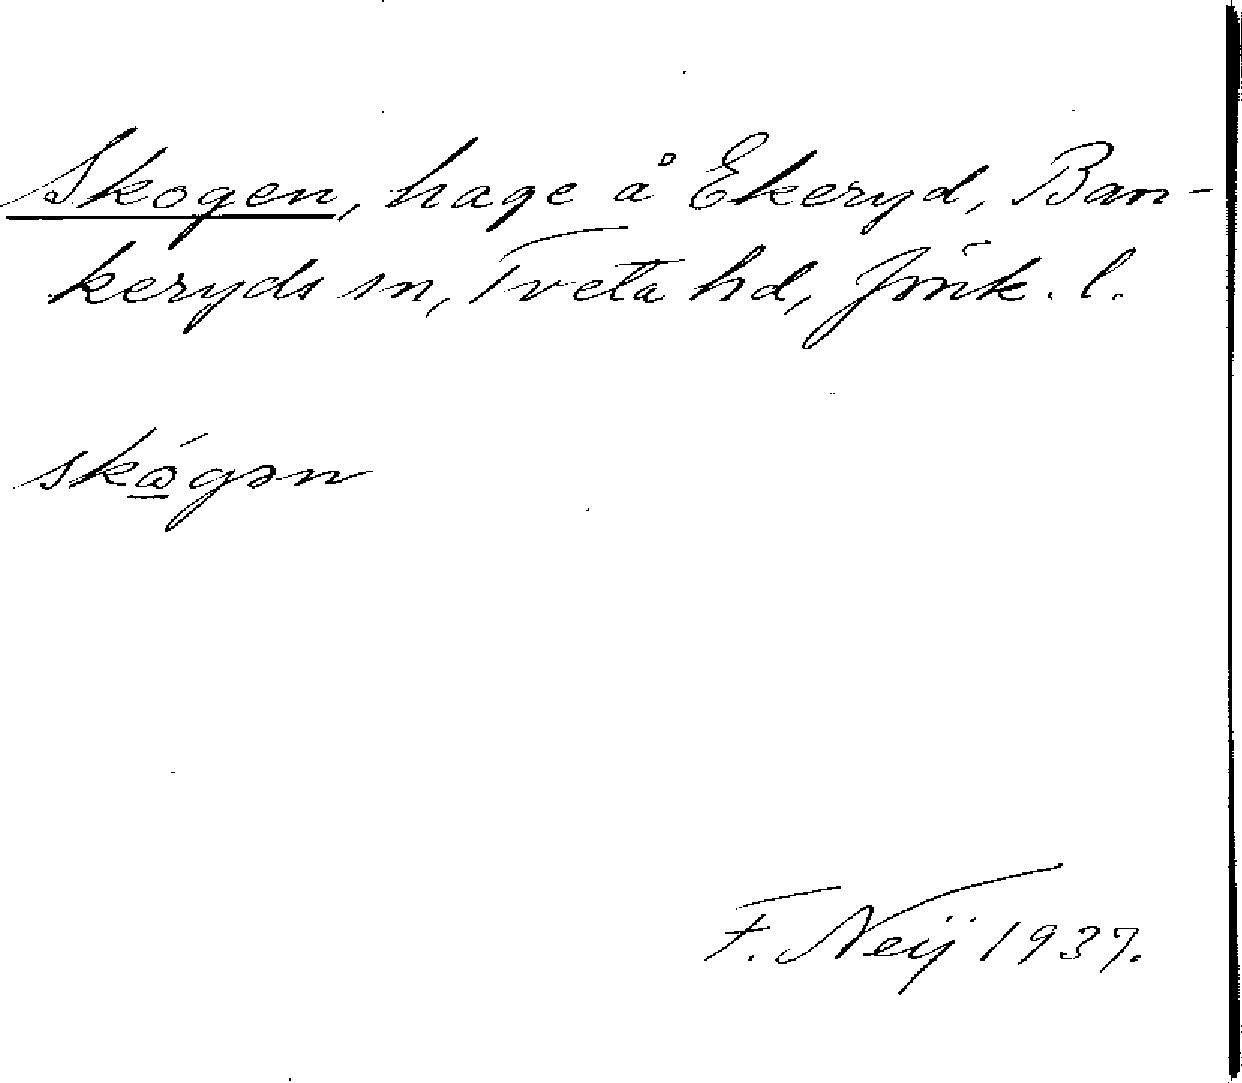 Skogen, hage å Ekeryd, Ban-
keryds sn, Tveta hd, Jönk. l.
F. Neij 1937.